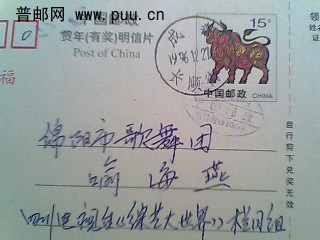 普邮网 www.puu.cn
中国邮政
贺年(有奖)明信片
Post of China
15分
1996.12.27
中国邮政 CHINA
福
绵阳市歌舞团
喻海燕
四川电视台《综艺大世界》栏目组
自行剪下兑奖无效